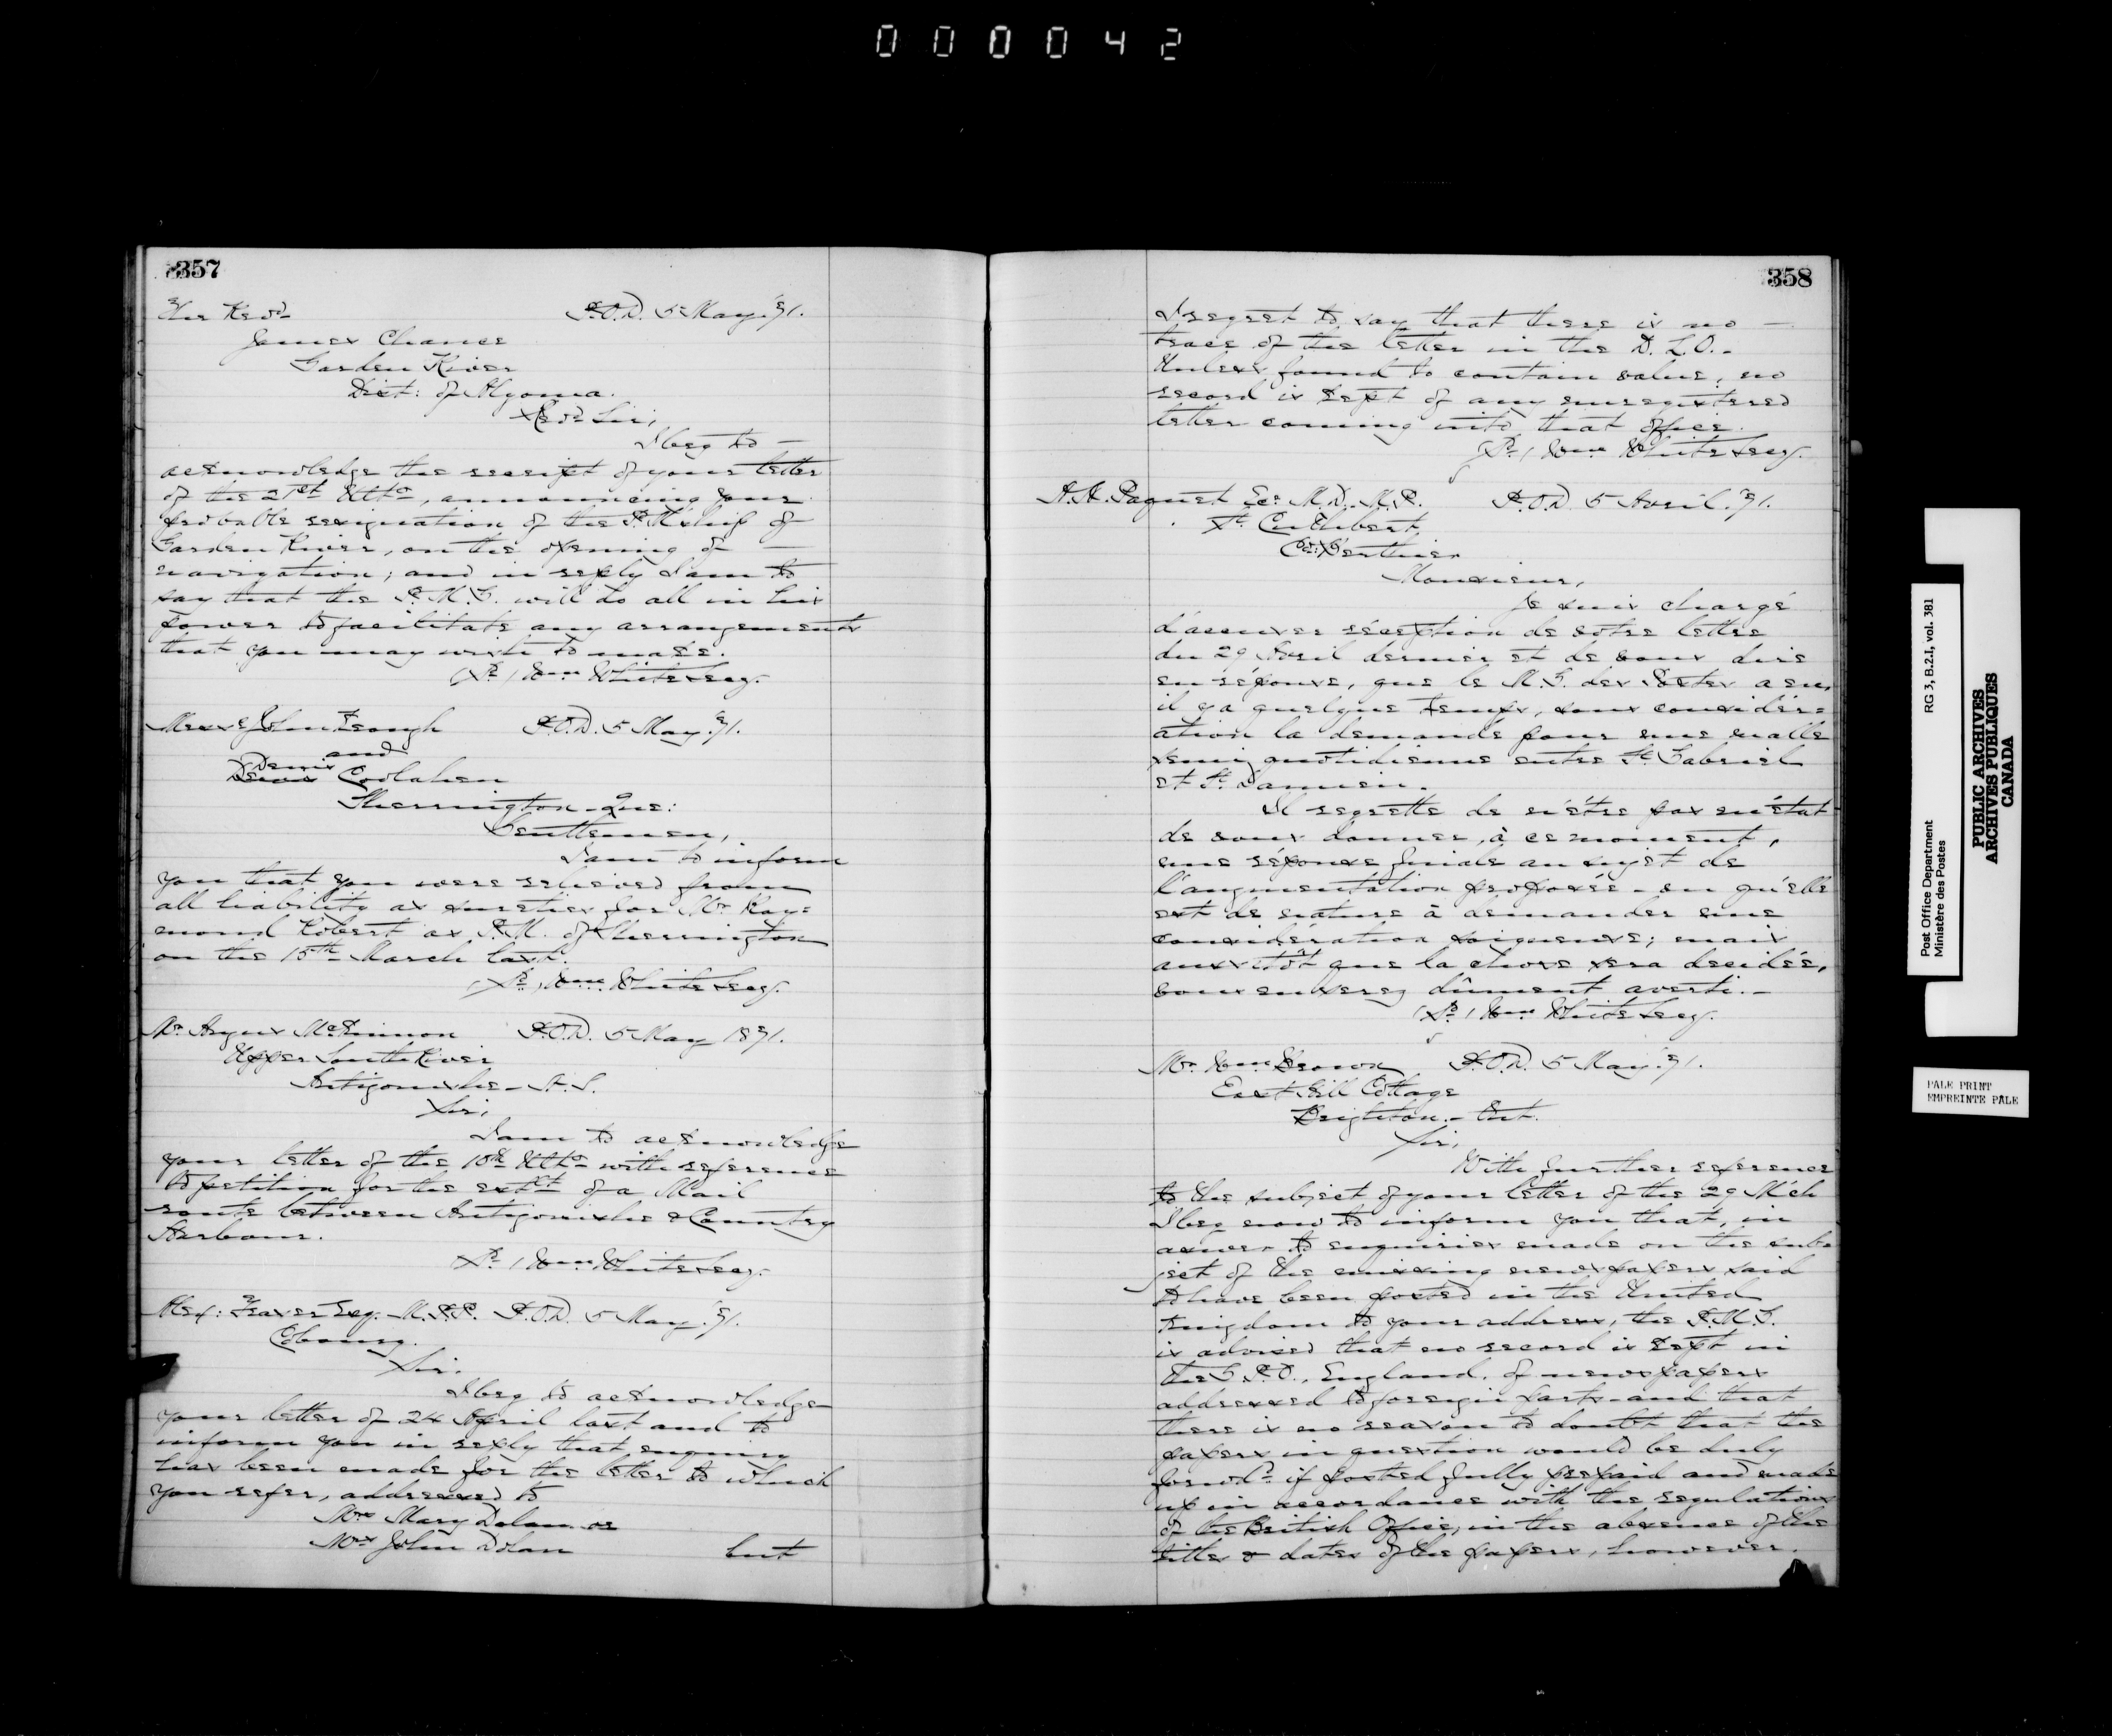 000042
357
The Revd P.O.D. 5 May '71.
James Chance
Garden River
Dist: of Algoma.
Revd Sir,
I beg to
acknowledge the receipt of your letter
of the 21st Ulto, announcing your
probable resignation of the P.M'ship of
Garden River, on the opening of
navigation; and in reply I am to
say that the P.M.G. will do all in his
power to facilitate any arrangements
that you may wish to make.
(Sd) Wm White Secy.
Messrs John Keough P.O.D. 5 May '71.
and
Denis
Denis Coolahen
Sherrington - Que:
Gentlemen,
I am to inform
you that you were relieved from
all liability as sureties for Mr Ray=
mond Robert as P.M. of Sherrington
on the 15th March last.
(Sd) Wm White Secy.
Mr Angus McKinnon P.O.D. 5 May 1871.
Upper South River
Antigonishe - N.S.
Sir,
I am to acknowledge
your letter of the 10th Ulto with reference
to petition for the extt of a Mail
route between Antigonishe & Country
Harbour.
(Sd) Wm White Secy.
Alex: Fraser Esq. M.P.P. P.O.D. 5 May '71.
Cobourg.
Sir,
I beg to acknowledge
your letter of 24 April last and to
inform you in reply that enquiry
has been made for the letter to which
you refer, addressed to
Mrs Mary Dolan or
Mrs John Dolan but
358
I regret to say that there is no
trace of the letter in the D.L.O.
Unless found to contain value, no
record is kept of any unregistered
letter coming into that office.
(Sd) Wm White Secy.
A.H. Paquet Ecr M.D. M.P. P.O.D. 5 Avril '71.
St Cuthbert
Co: Berthier
Monsieur,
Je suis chargé
d'accuser réception de votre lettre
du 29 Avril dernier et de vous dire
en réponse, que le M.G. des Postes a eu,
il y a quelque temps, sous considér=
ation la demande pour une malle
semi quotidienne entre St Gabriel
et St Damien.
Il regrette de n'être pas en état
de vous donner, à ce moment,
une réponse finale au sujet de
l'augmentation proposée - vu qu'elle
est de nature à demander une
considération soigneuse; mais
aussitôt que la chose sera decidée,
vous en serez dûment averti.
(Sd) Wm White Secy.
Mr Wm Brown P.O.D. 5 May '71.
East Hill Cottage
Brighton - Ont.
Sir,
With further reference
to the subject of your letter of the 29 M'ch
I beg now to inform you that, in
answer to enquiries made on the sub=
ject of the missing newspapers said
to have been posted in the United
Kingdom to your address, the P.M.G.
is advised that no record is kept in
the G.P.O., England, of newspapers
addressed to foreign parts - and that
there is no reason to doubt that the
papers in question would be duly
forwd if posted fully prepaid and made
up in accordance with the regulations
of the British Office, in the absence of the
titles & dates of the papers, however.
Post Office Department
Ministère des Postes
RG 3, B.2.I, vol. 381
PUBLIC ARCHIVES
ARCHIVES PUBLIQUES
CANADA
PALE PRINT
EMPREINTE PÂLE